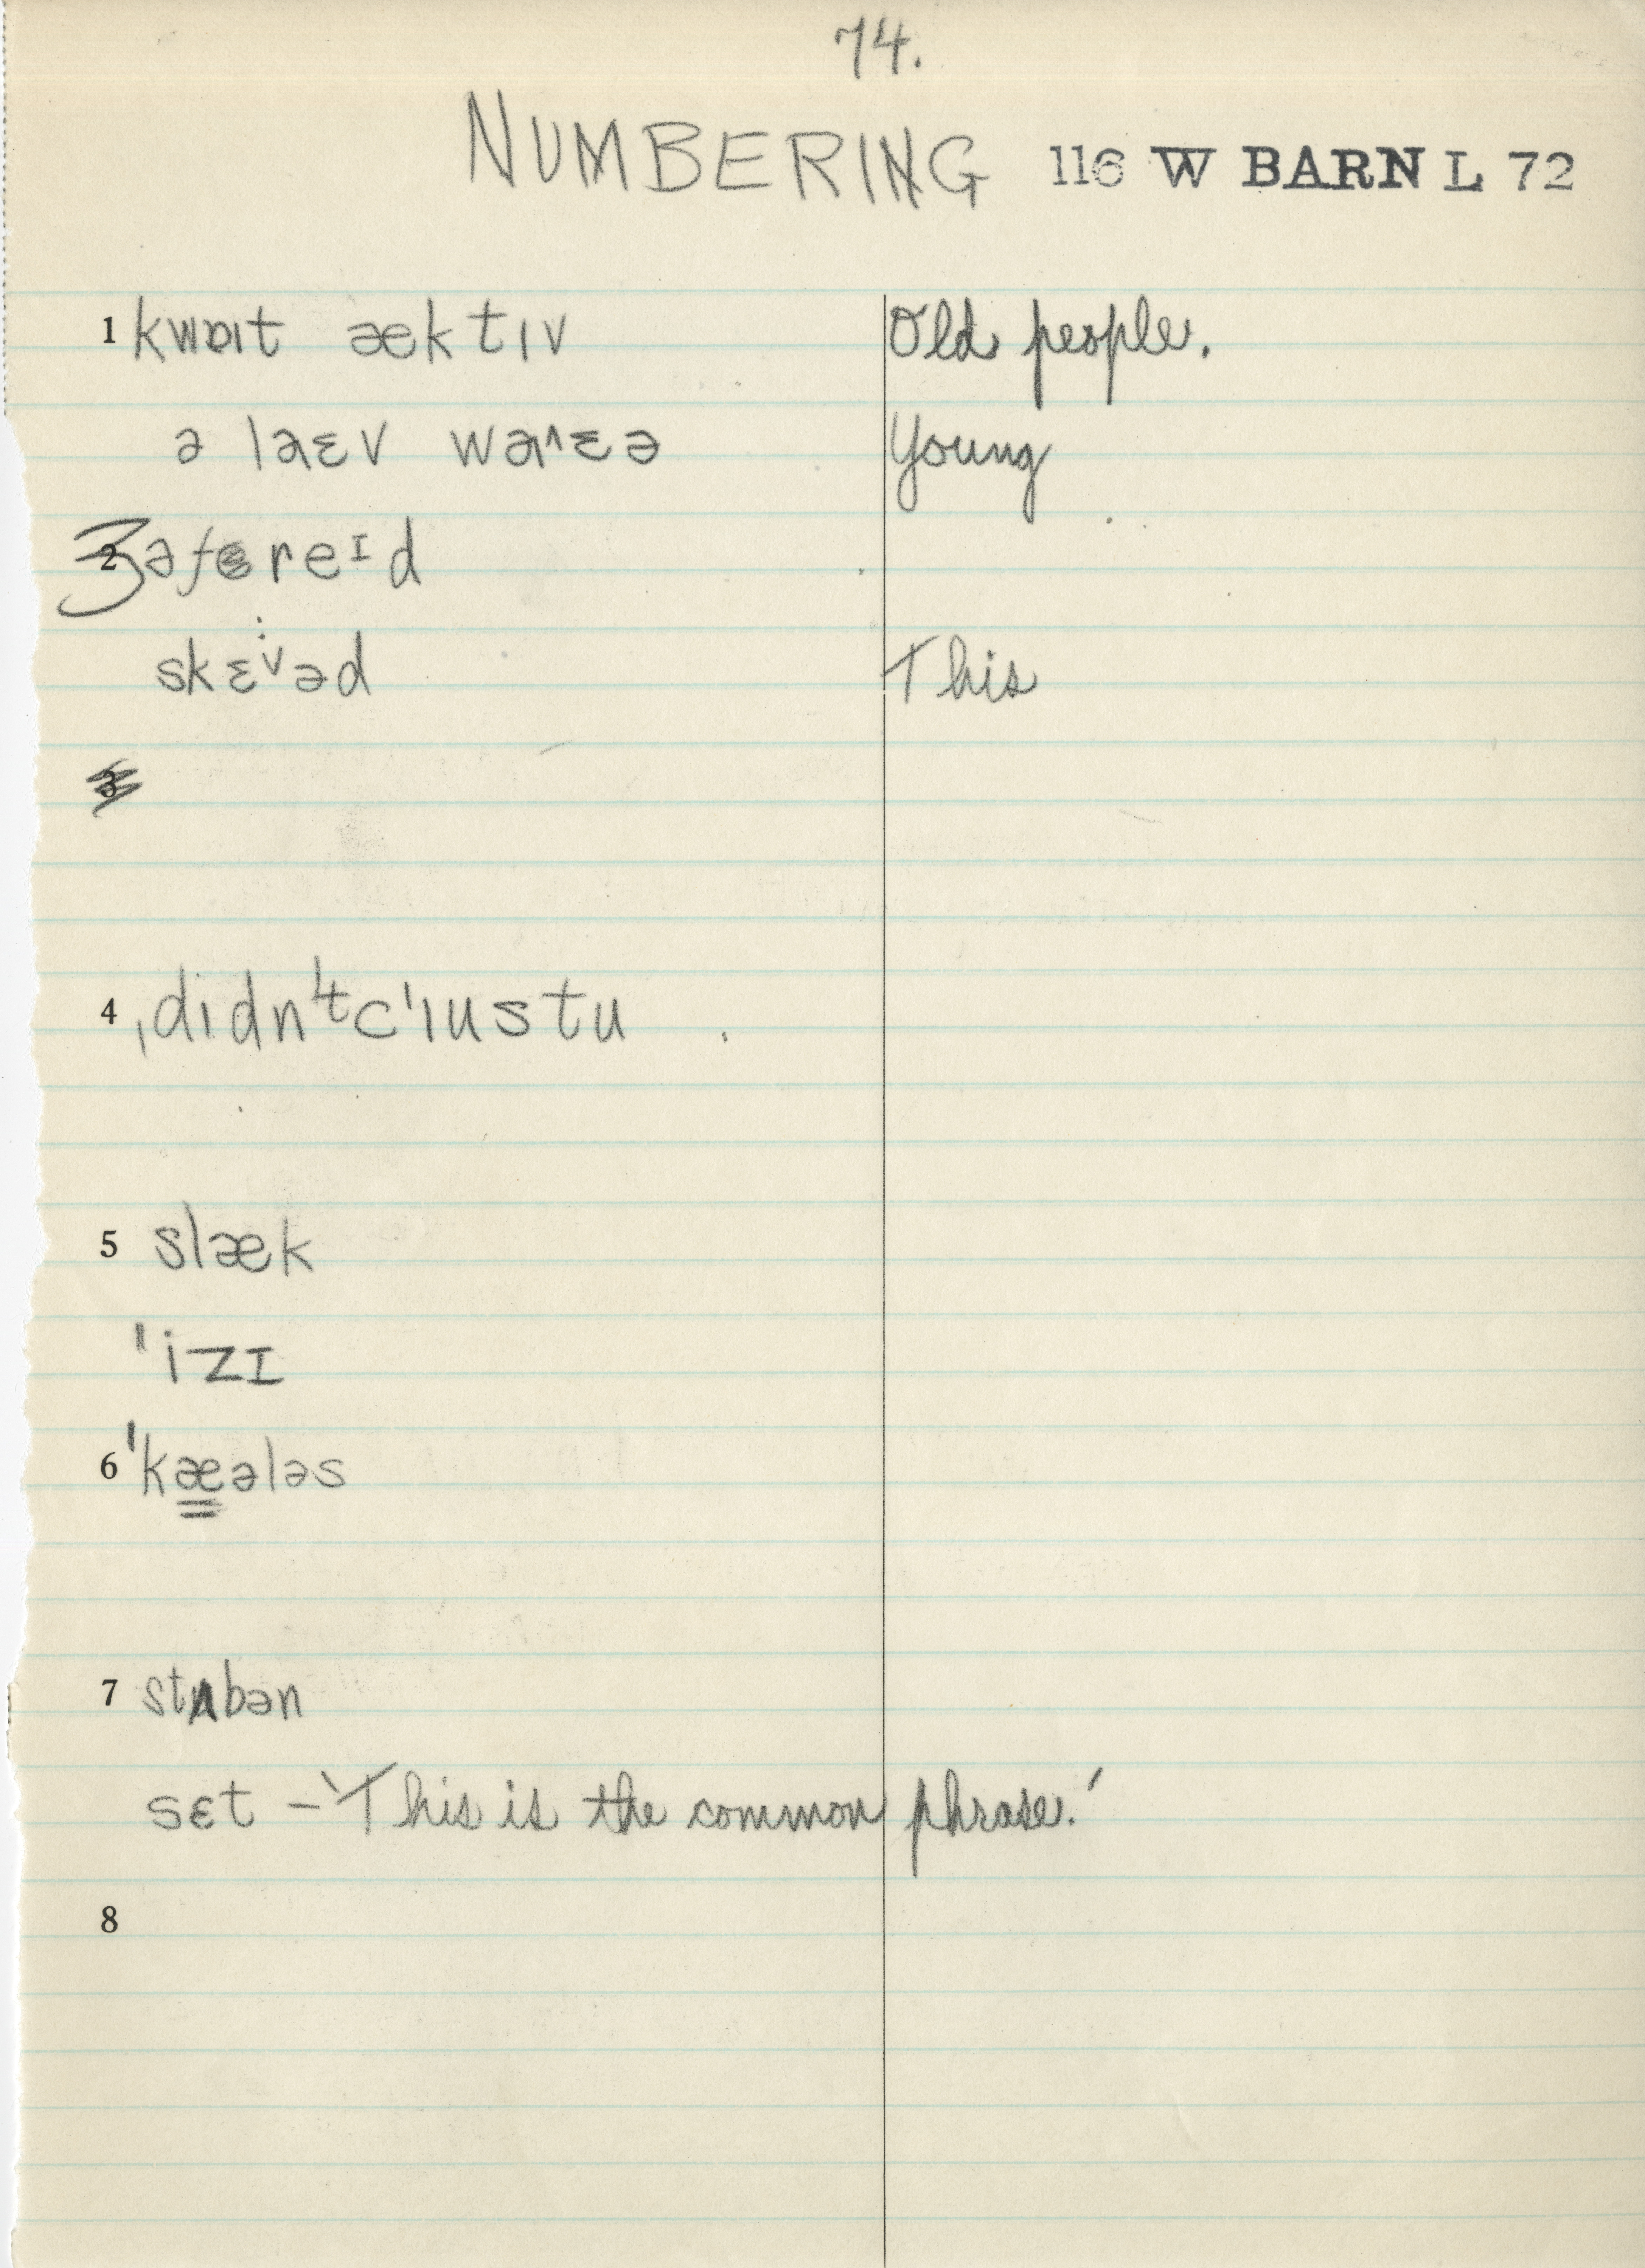 74.
NUMBERING 116 W BARN L 72
1 kwɒıt æktıv Old people.
ə laɛv waˈɛə Young
3 əfereɪd
skɛˇəd This
3
4 ˌdıdn'tcˈıustu
5 slæk
ˈizɪ
6 ˈkæələs
7 stʌbən
sɛt - 'This is the common phrase.'
8